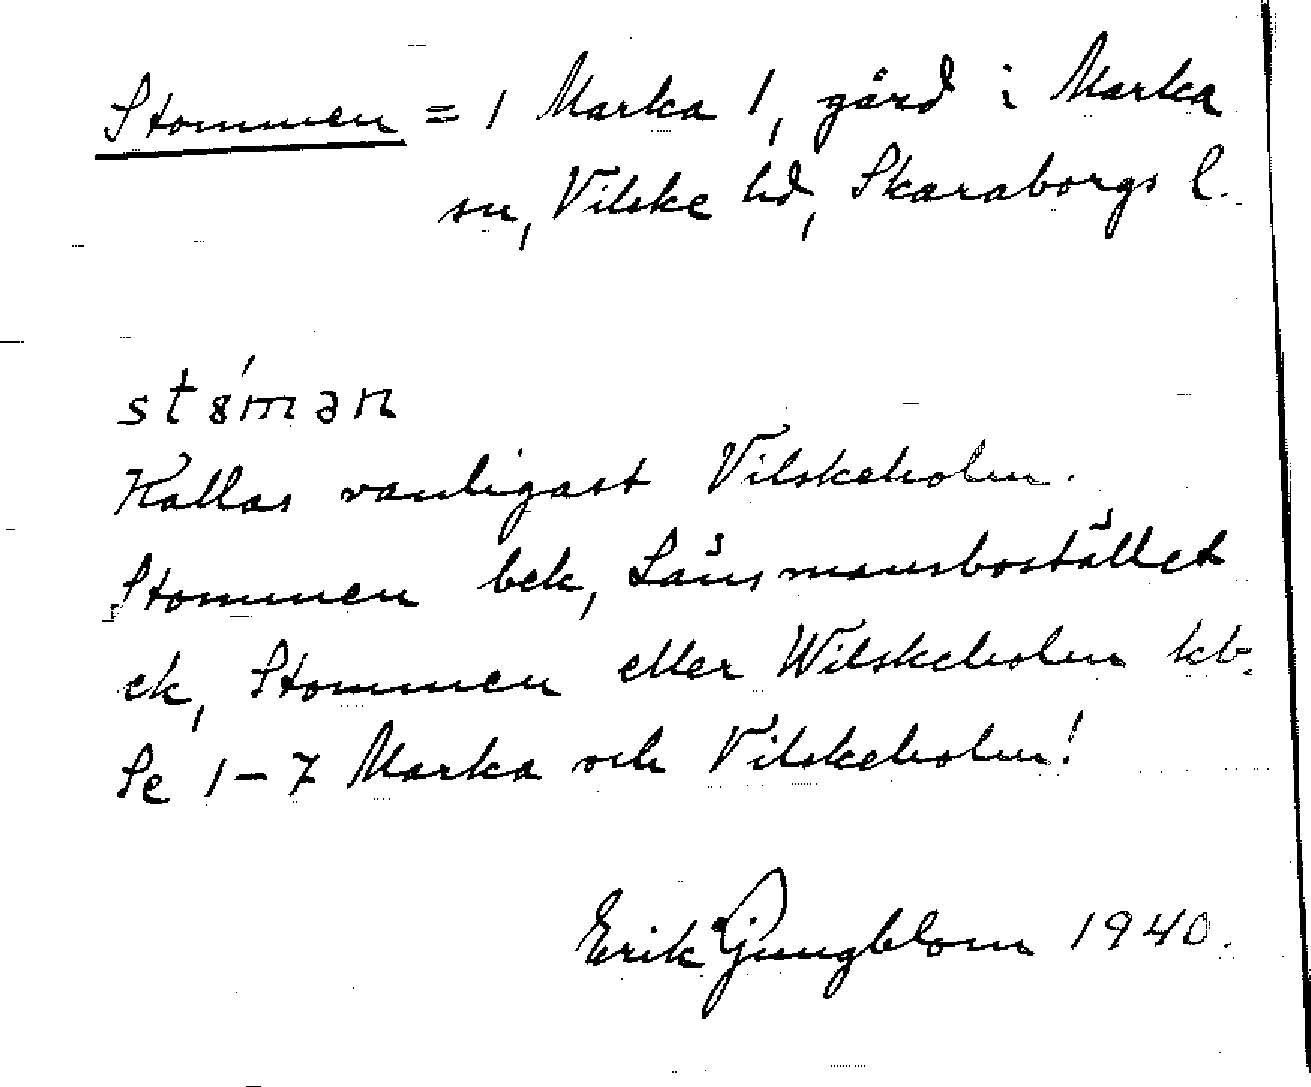 Stommen = 1 Marka 1, gård i Marka
sn, Vilske hd, Skaraborgs l.
stömən
Kallas vanligast Vilskeholm.
Stommen bek, Länsmansbostället
ek, Stommen eller Wilskeholm kb.
Se 1-7 Marka och Vilskeholm!
Erik Ljungblom 1940.